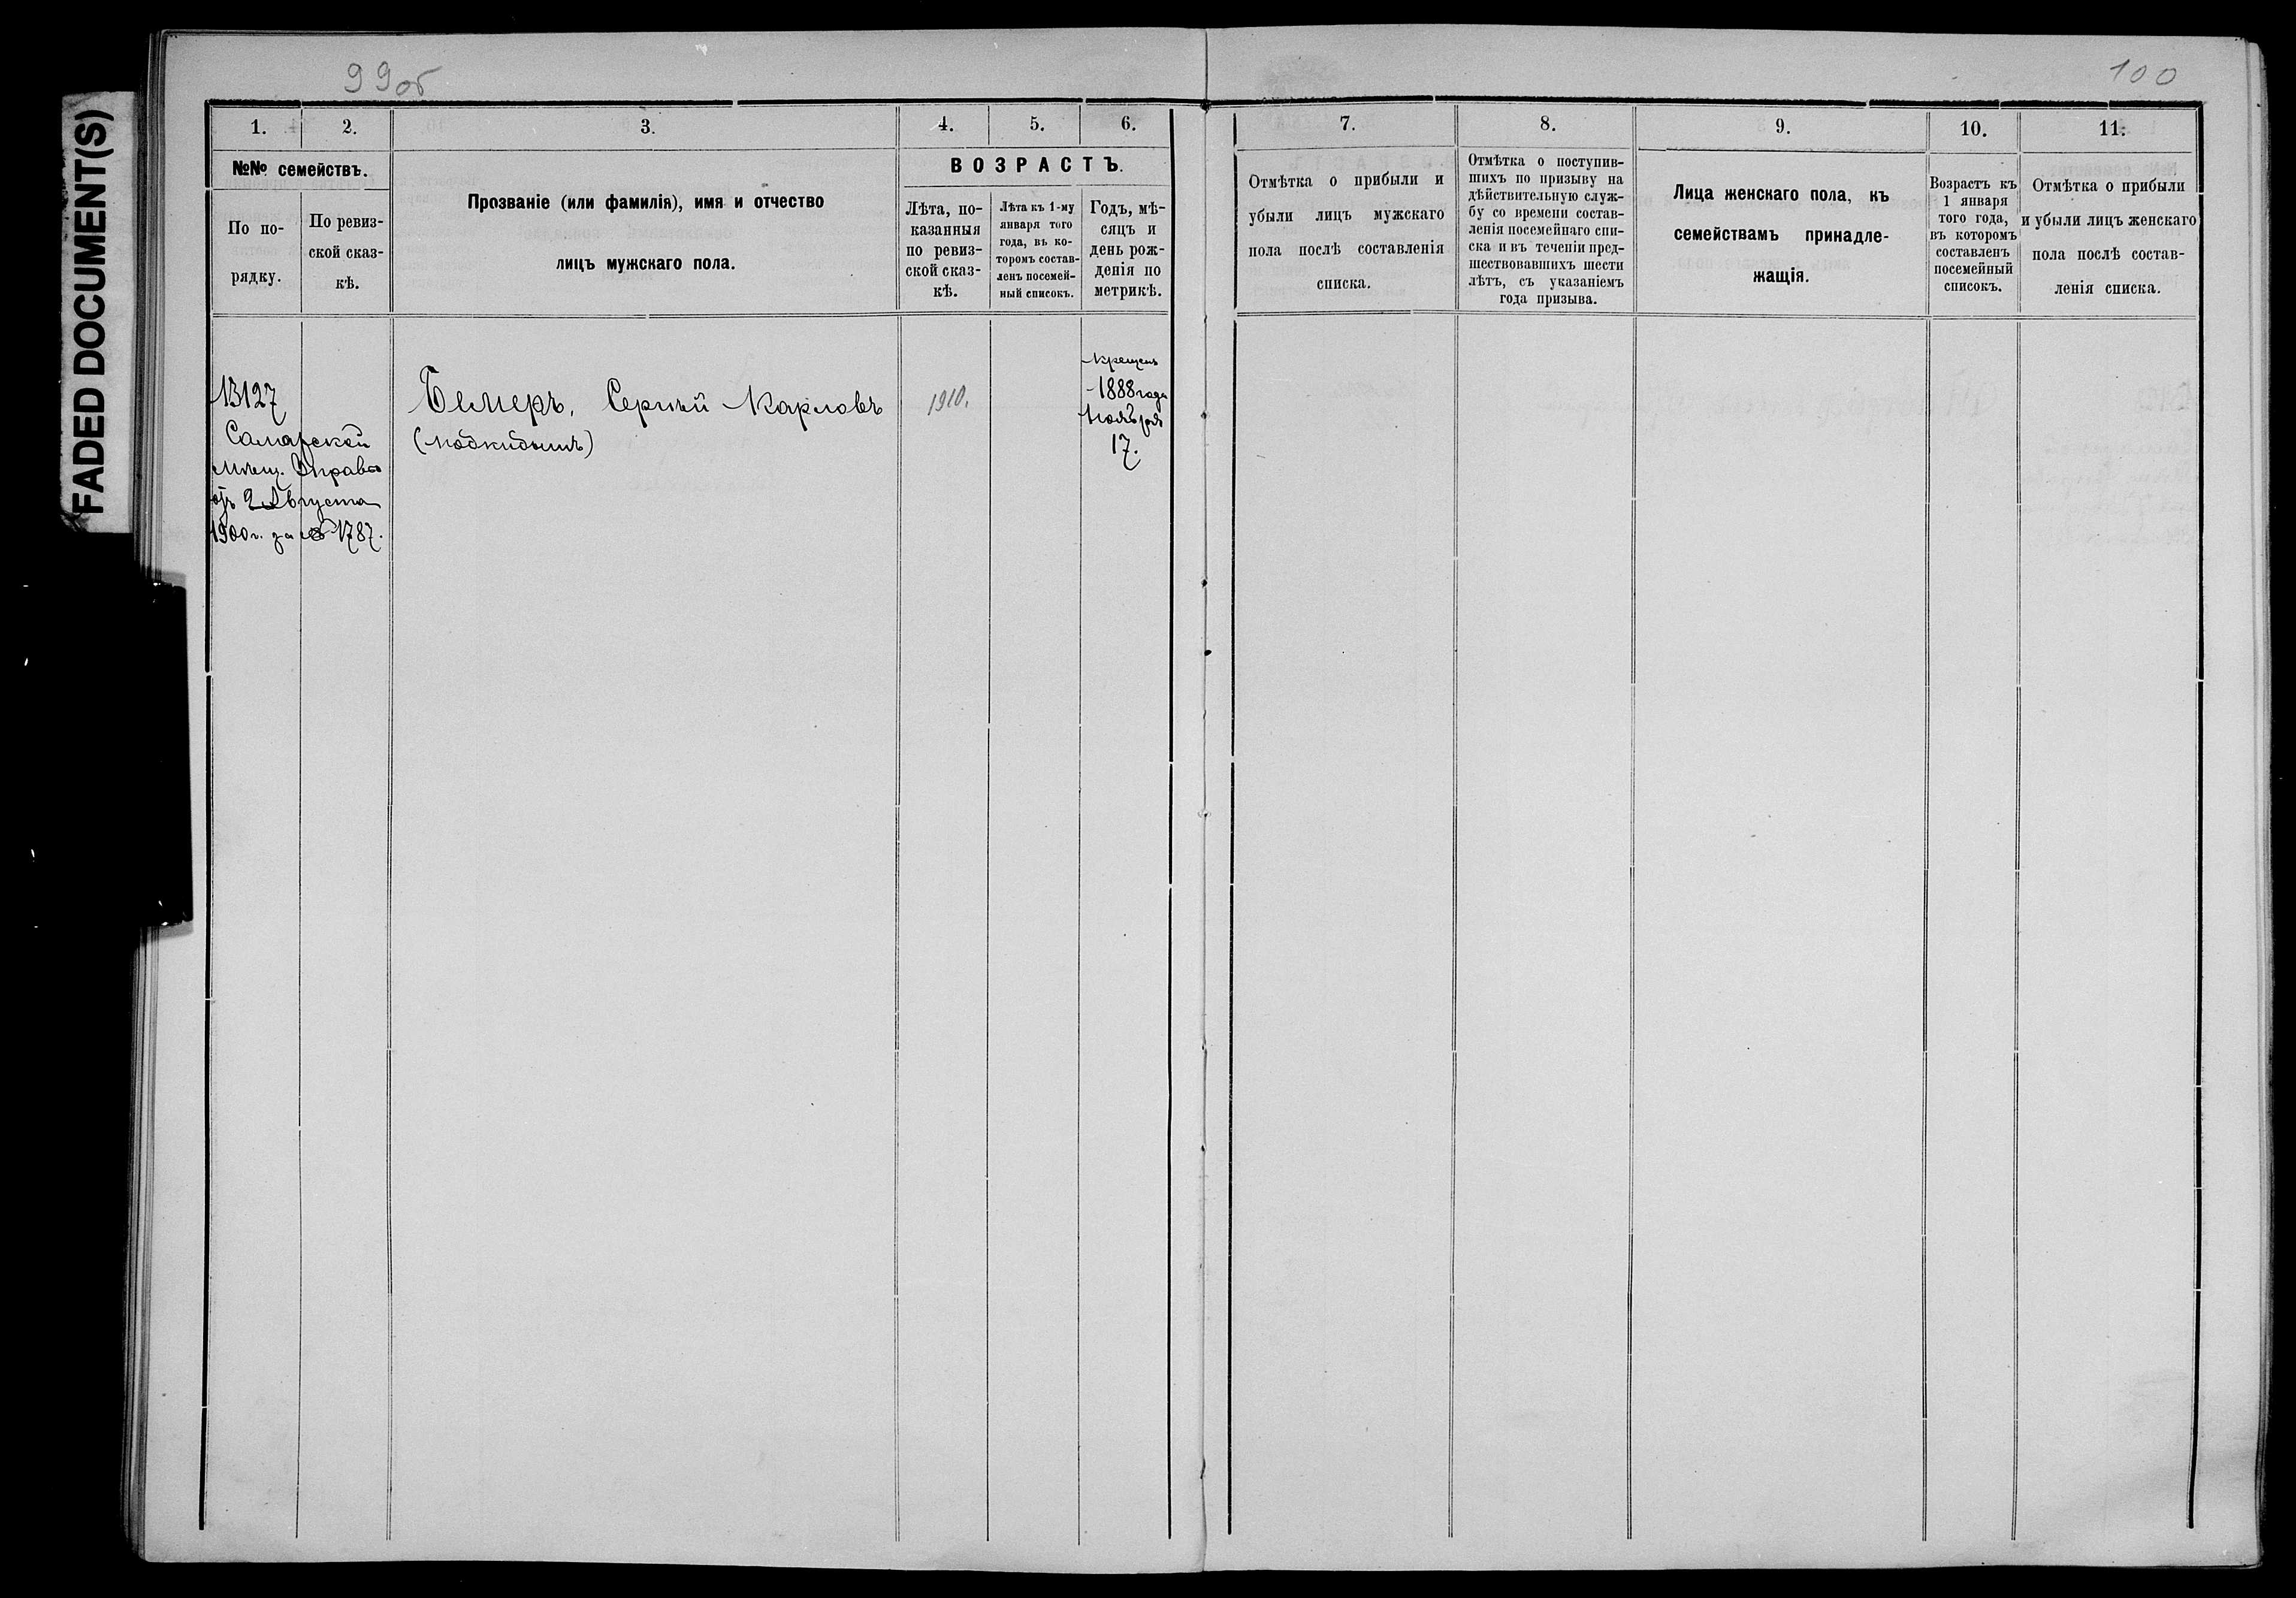 FADED DOCUMENT(S)
99об
100
1. 2. 3. 4. 5. 6.
№№ семействъ.
По по-
рядку.
По ревиз-
ской сказ-
кѣ.
Прозваніе (или фамилія), имя и отчество
лицъ мужскаго пола.
ВОЗРАСТЪ.
Лѣта, по-
казанныя
по ревиз-
ской сказ-
кѣ.
Лѣта къ 1-му
января того
года, въ ко-
торомъ состав-
ленъ посемей-
ный списокъ.
Годъ, мѣ-
сяцъ и
день рож-
денія по
метрикѣ.
13127
Самарской
мѣщ. Управы
отъ 2 Августа
1900 г. за № 1787.
Бемеръ, Сергѣй Карловъ
(подкидышъ)
1910.
крещенъ
1888 года
Ноября
17.
7. 8. 9. 10. 11.
Отмѣтка о прибыли и
убыли лицъ мужскаго
пола послѣ составленія
списка.
Отмѣтка о поступив-
шихъ по призыву на
дѣйствительную служ-
бу со времени состав-
ленія посемейнаго спи-
ска и въ теченіи пред-
шествовавшихъ шести
лѣтъ, съ указаніемъ
года призыва.
Лица женскаго пола, къ
семействамъ принадле-
жащія.
Возрастъ къ
1 января
того года,
въ которомъ
составленъ
посемейный
списокъ.
Отмѣтка о прибыли
и убыли лицъ женскаго
пола послѣ состав-
ленія списка.